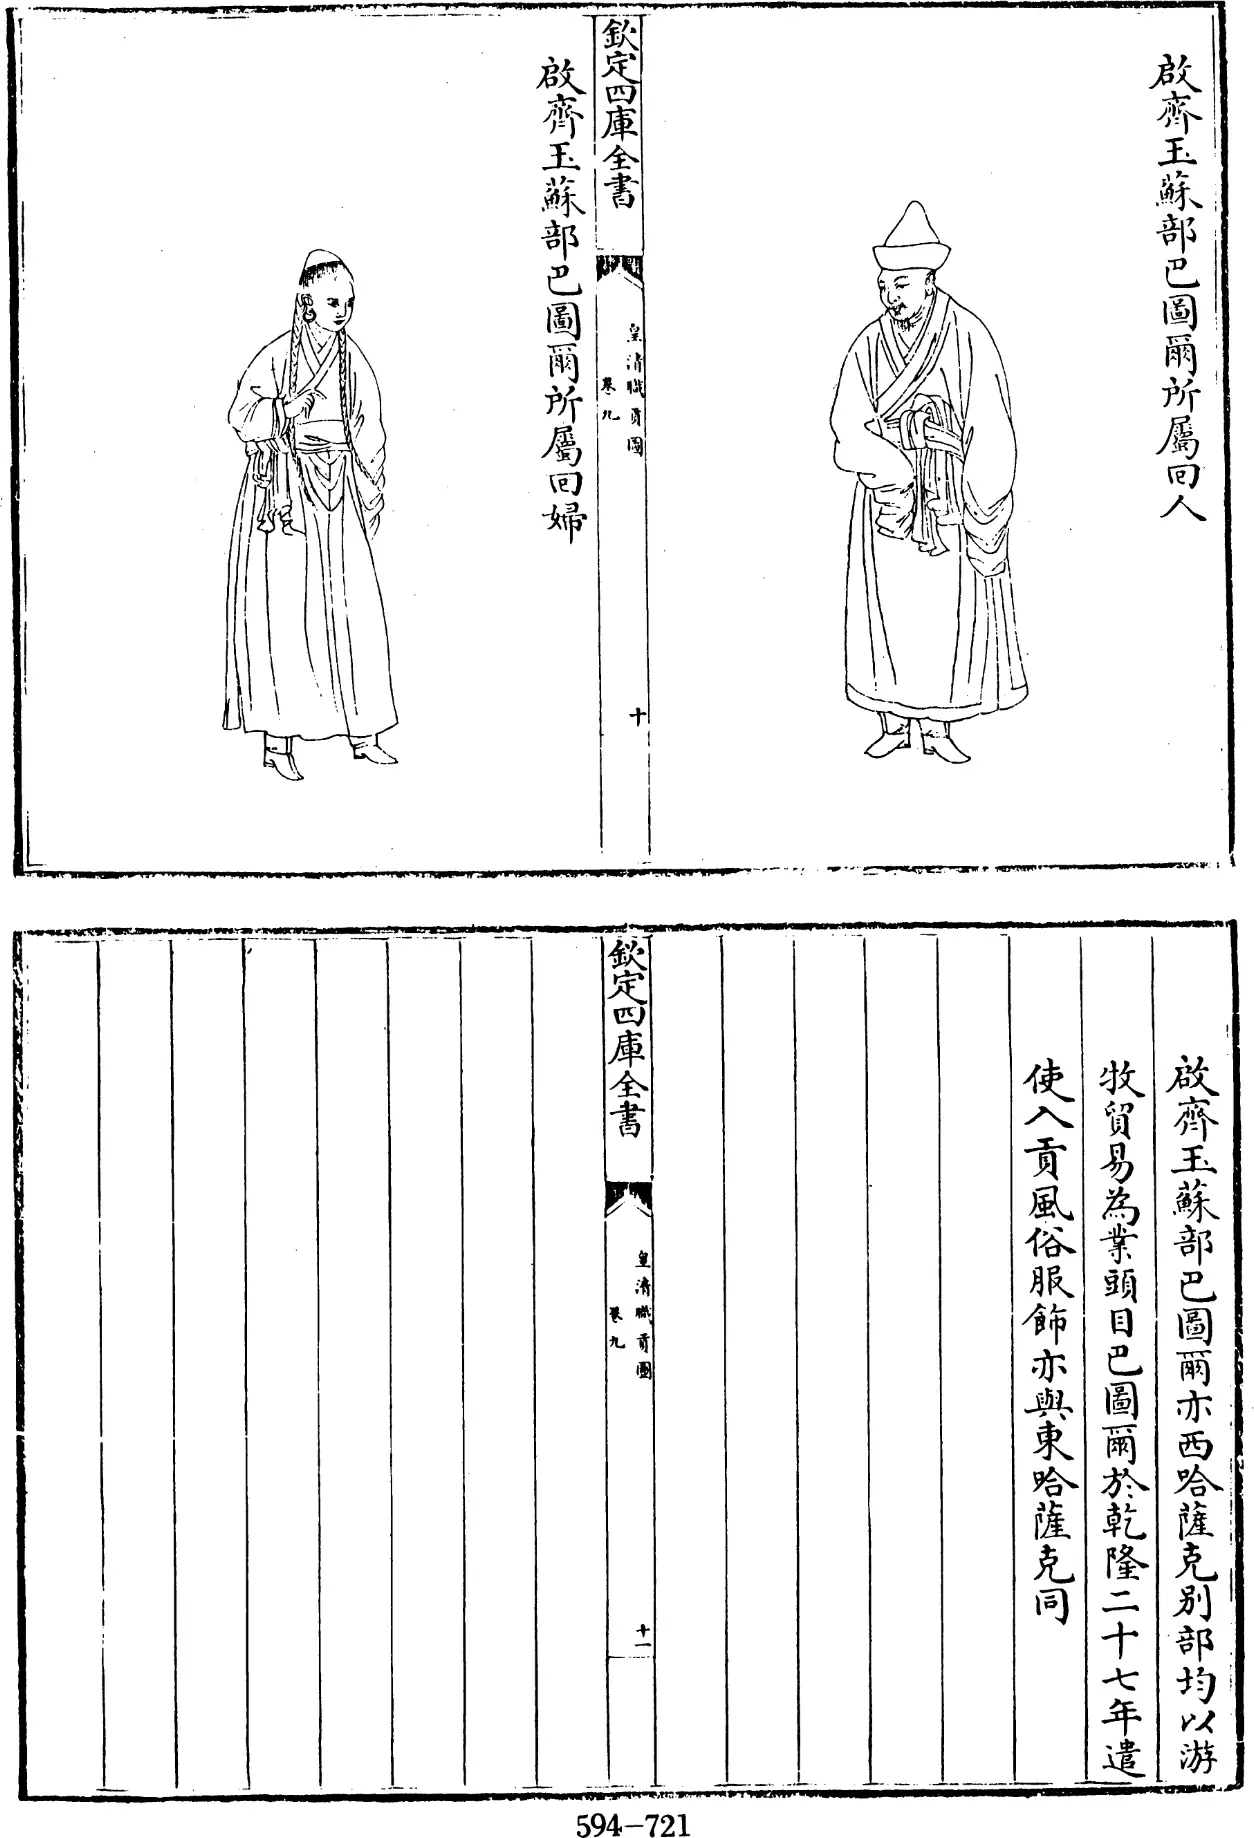 啟齊玉蘇部巴圖爾所屬回人
欽定四庫全書
皇清職貢圖
卷九
十
啟齊玉蘇部巴圖爾所屬回婦
啟齊玉蘇部巴圖爾亦西哈薩克别部均以游
牧貿易為業頭目巴圖爾於乾隆二十七年遣
使入貢風俗服飾亦與東哈薩克同
欽定四庫全書
皇清職貢圖
卷九
十一
594-721